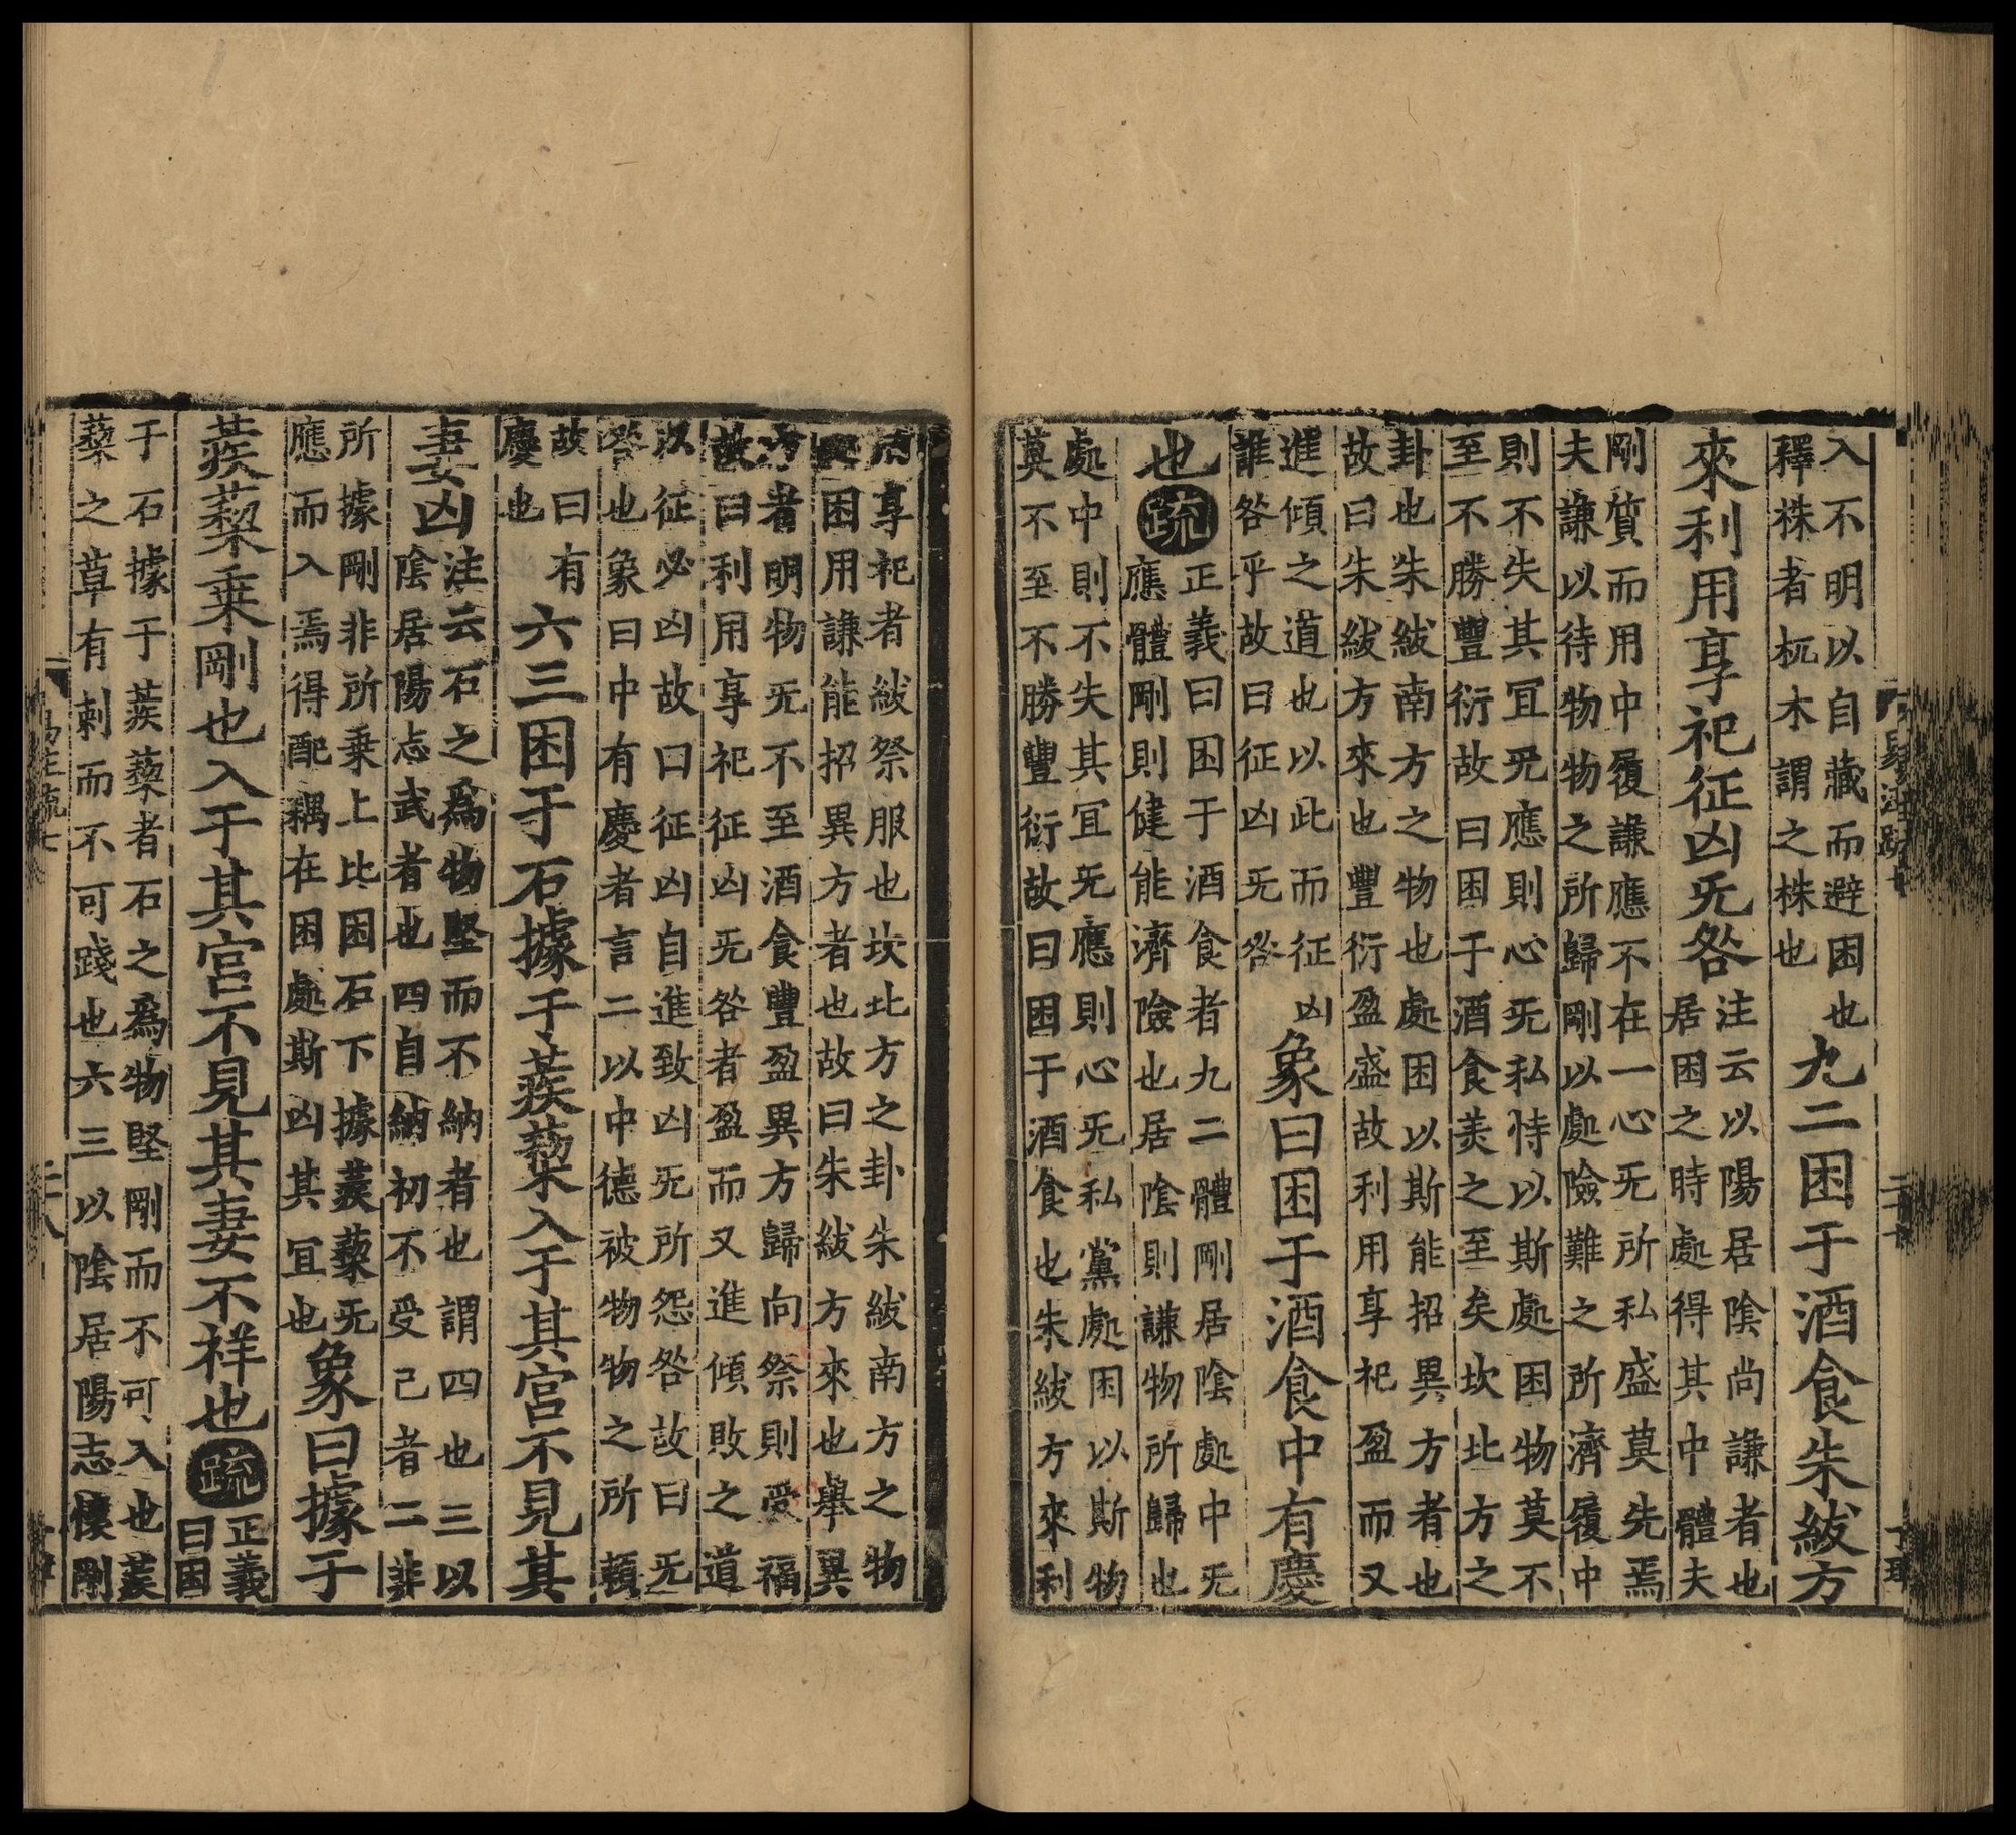 入不明以自藏而避困也
釋株者杌木謂之株也
九二困于酒食朱紱方
來利用享祀征凶旡咎
注云以陽居陰尚謙者也
居困之時處得其中體夫
剛質而用中履謙應不在一心旡所私盛莫先焉
夫謙以待物物之所歸剛以處險難之所濟履中
則不失其宜旡應則心旡私恃以斯處困物莫不
至不勝豐衍故曰困于酒食美之至矣坎北方之
卦也朱紱南方之物也處困以斯能招異方者也
故曰朱紱方來也豐衍盈盛故利用享祀盈而又
進傾之道也以此而征凶
誰咎乎故曰征凶旡咎
象曰困于酒食中有慶
也
疏
正義曰困于酒食者九二體剛居陰處中旡
應體剛則健能濟險也居陰則謙物所歸也
處中則不失其宜旡應則心旡私黨處困以斯物
莫不至不勝豐衍故曰困于酒食也朱紱方來利
用享祀者紱祭服也坎北方之卦朱紱南方之物
處困用謙能招異方者也故曰朱紱方來也舉異
方者明物旡不至酒食豐盈異方歸向祭則受福
故曰利用享祀征凶旡咎者盈而又進傾敗之道
以征必凶故曰征凶自進致凶旡所怨咎故曰旡
咎也象曰中有慶者言二以中德被物物之所賴
故曰有
慶也
六三困于石據于蒺蔾入于其宮不見其
妻凶
注云石之爲物堅而不納者也謂四也三以
陰居陽志武者也四自納初不受己者二非
所據剛非所乗上比困石下據蒺蔾旡
應而入焉得配耦在困處斯凶其宜也
象曰據于
蒺蔾乗剛也入于其宮不見其妻不祥也
疏
正義
曰困
于石據于蒺蔾者石之爲物堅剛而不可入也蒺
蔾之草有刺而不可踐也六三以陰居陽志懷剛